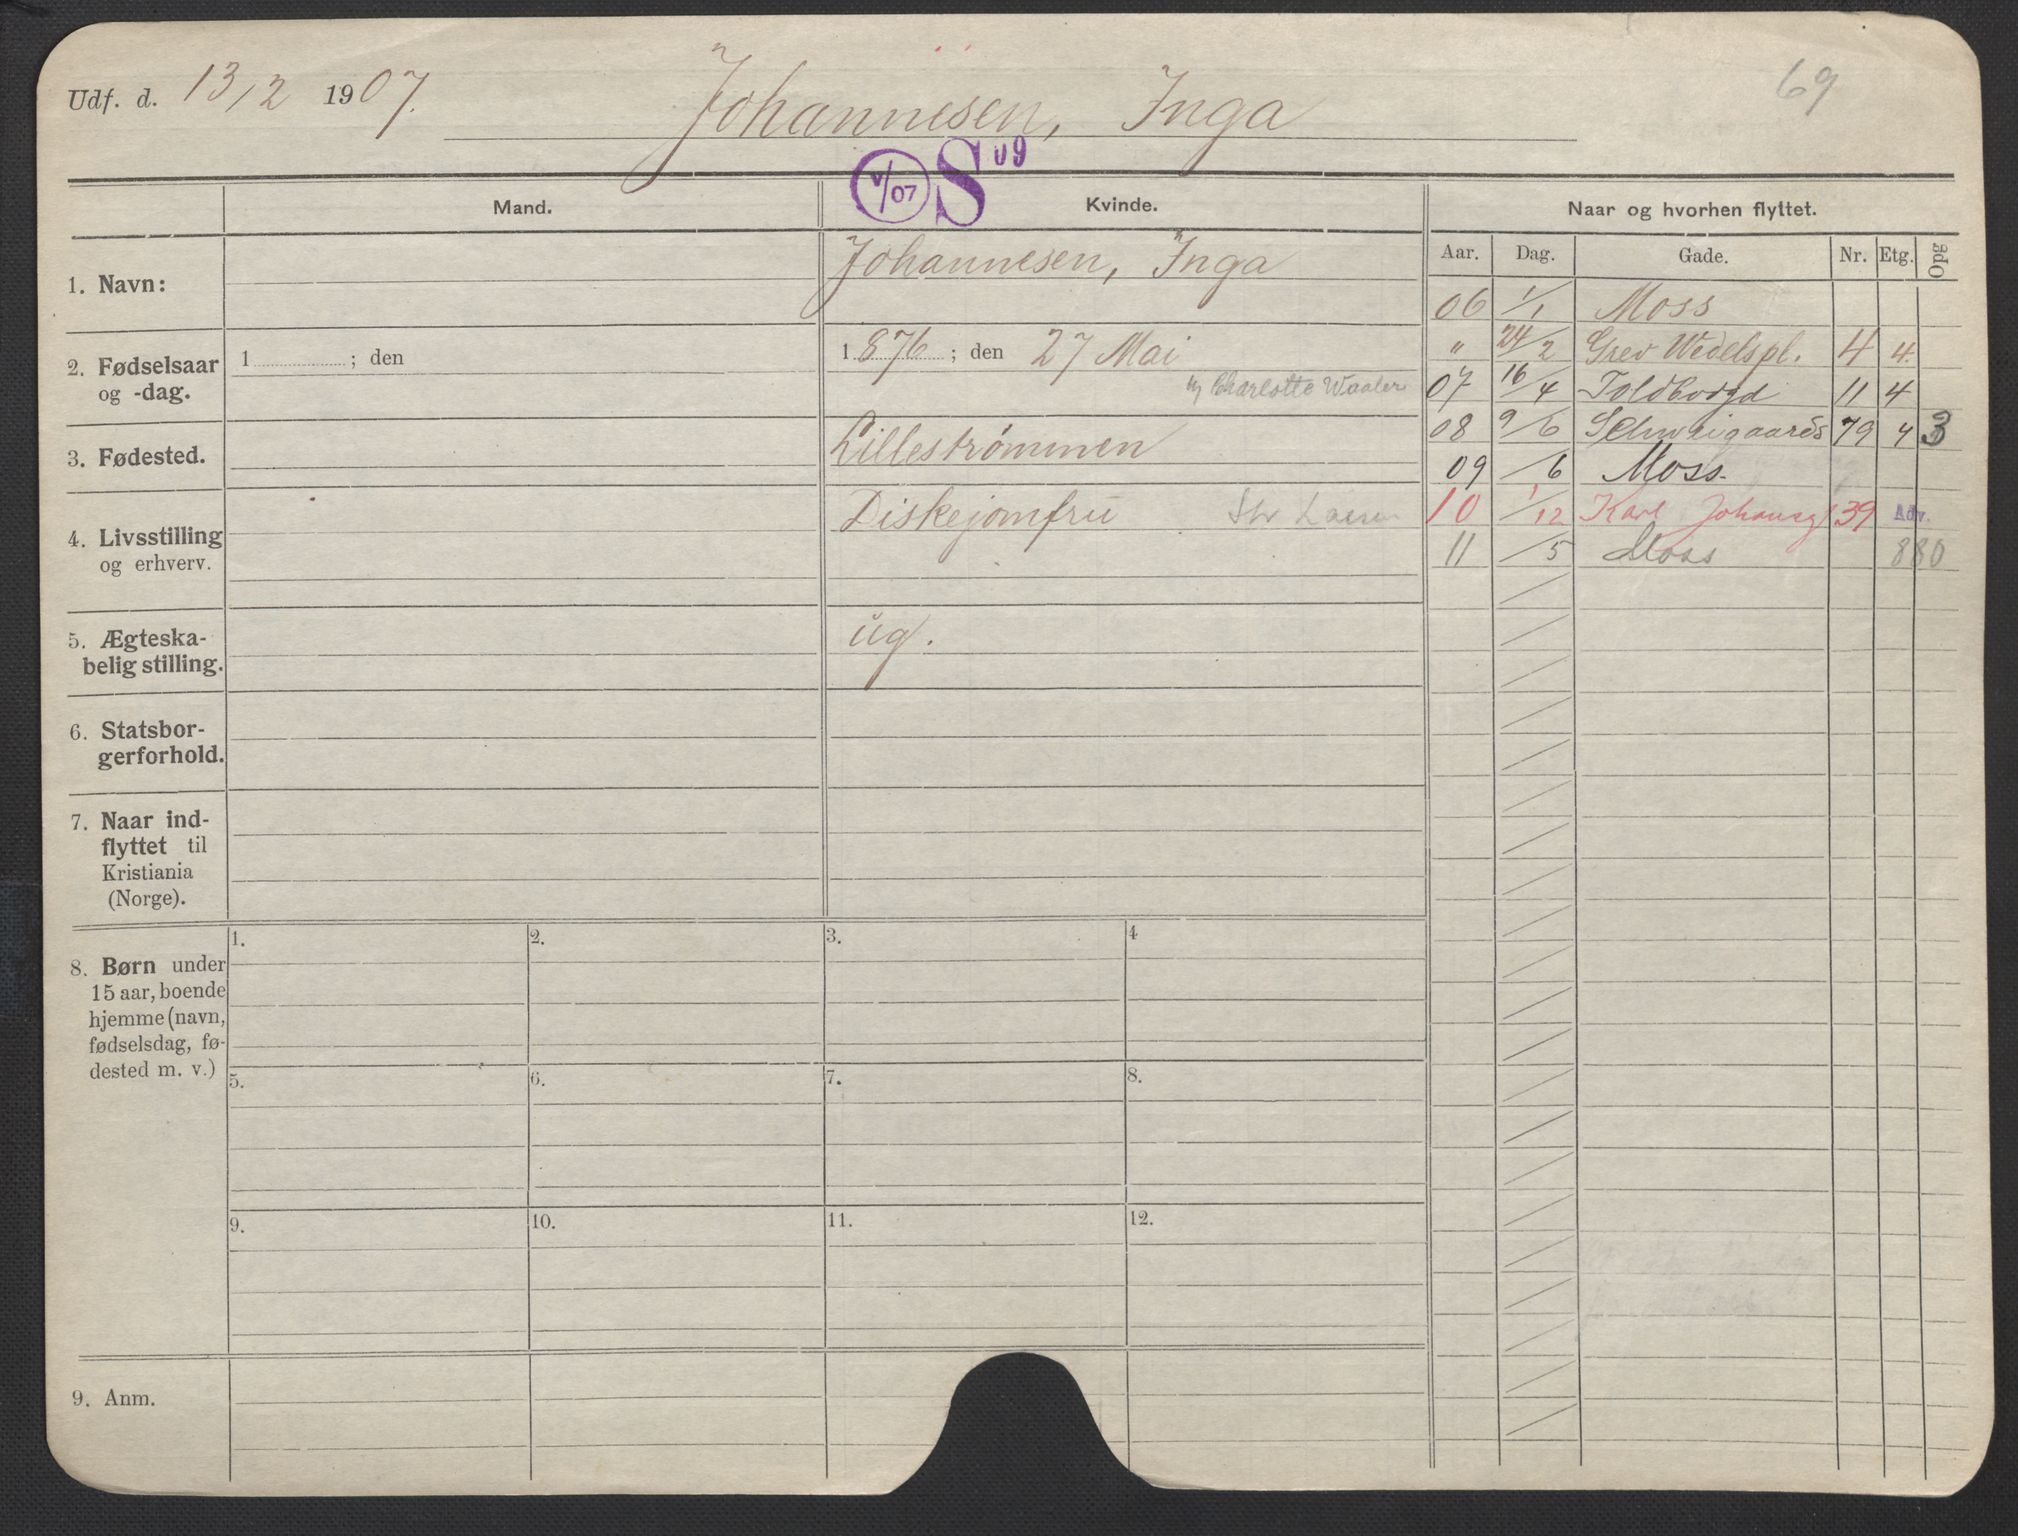 Udf. d. 13/2 1907. Johannesen, Inga 69
V/07 S 09
Mand. Kvinde. Naar og hvorhen flyttet.
Aar. Dag. Gade. Nr. Etg. Opg
1. Navn: Johannesen, Inga
06 1/1 Moss
2. Fødselsaar og -dag. 1 ; den 1876 ; den 27 Mai
" 24/2 Grev Wedelspl. 4 4.
Charlotte Waaler
07 16/4 Toldbodgd 11 4
3. Fødested. Lillestrømmen
08 9/6 Schweigaards 79 4 3
09 /6 Moss.
4. Livsstilling og erhverv. Diskejomfru
10 1/12 Karl Johansg 39 Adv.
11 /5 Moss 880
5. Ægteska-
belig stilling. ug.
6. Statsbor-
gerforhold.
7. Naar ind-
flyttet til
Kristiania
(Norge).
8. Børn under
15 aar, boende
hjemme (navn,
fødselsdag, fø-
dested m. v.)
1. 2. 3. 4
5. 6. 7. 8.
9. 10. 11. 12.
9. Anm.